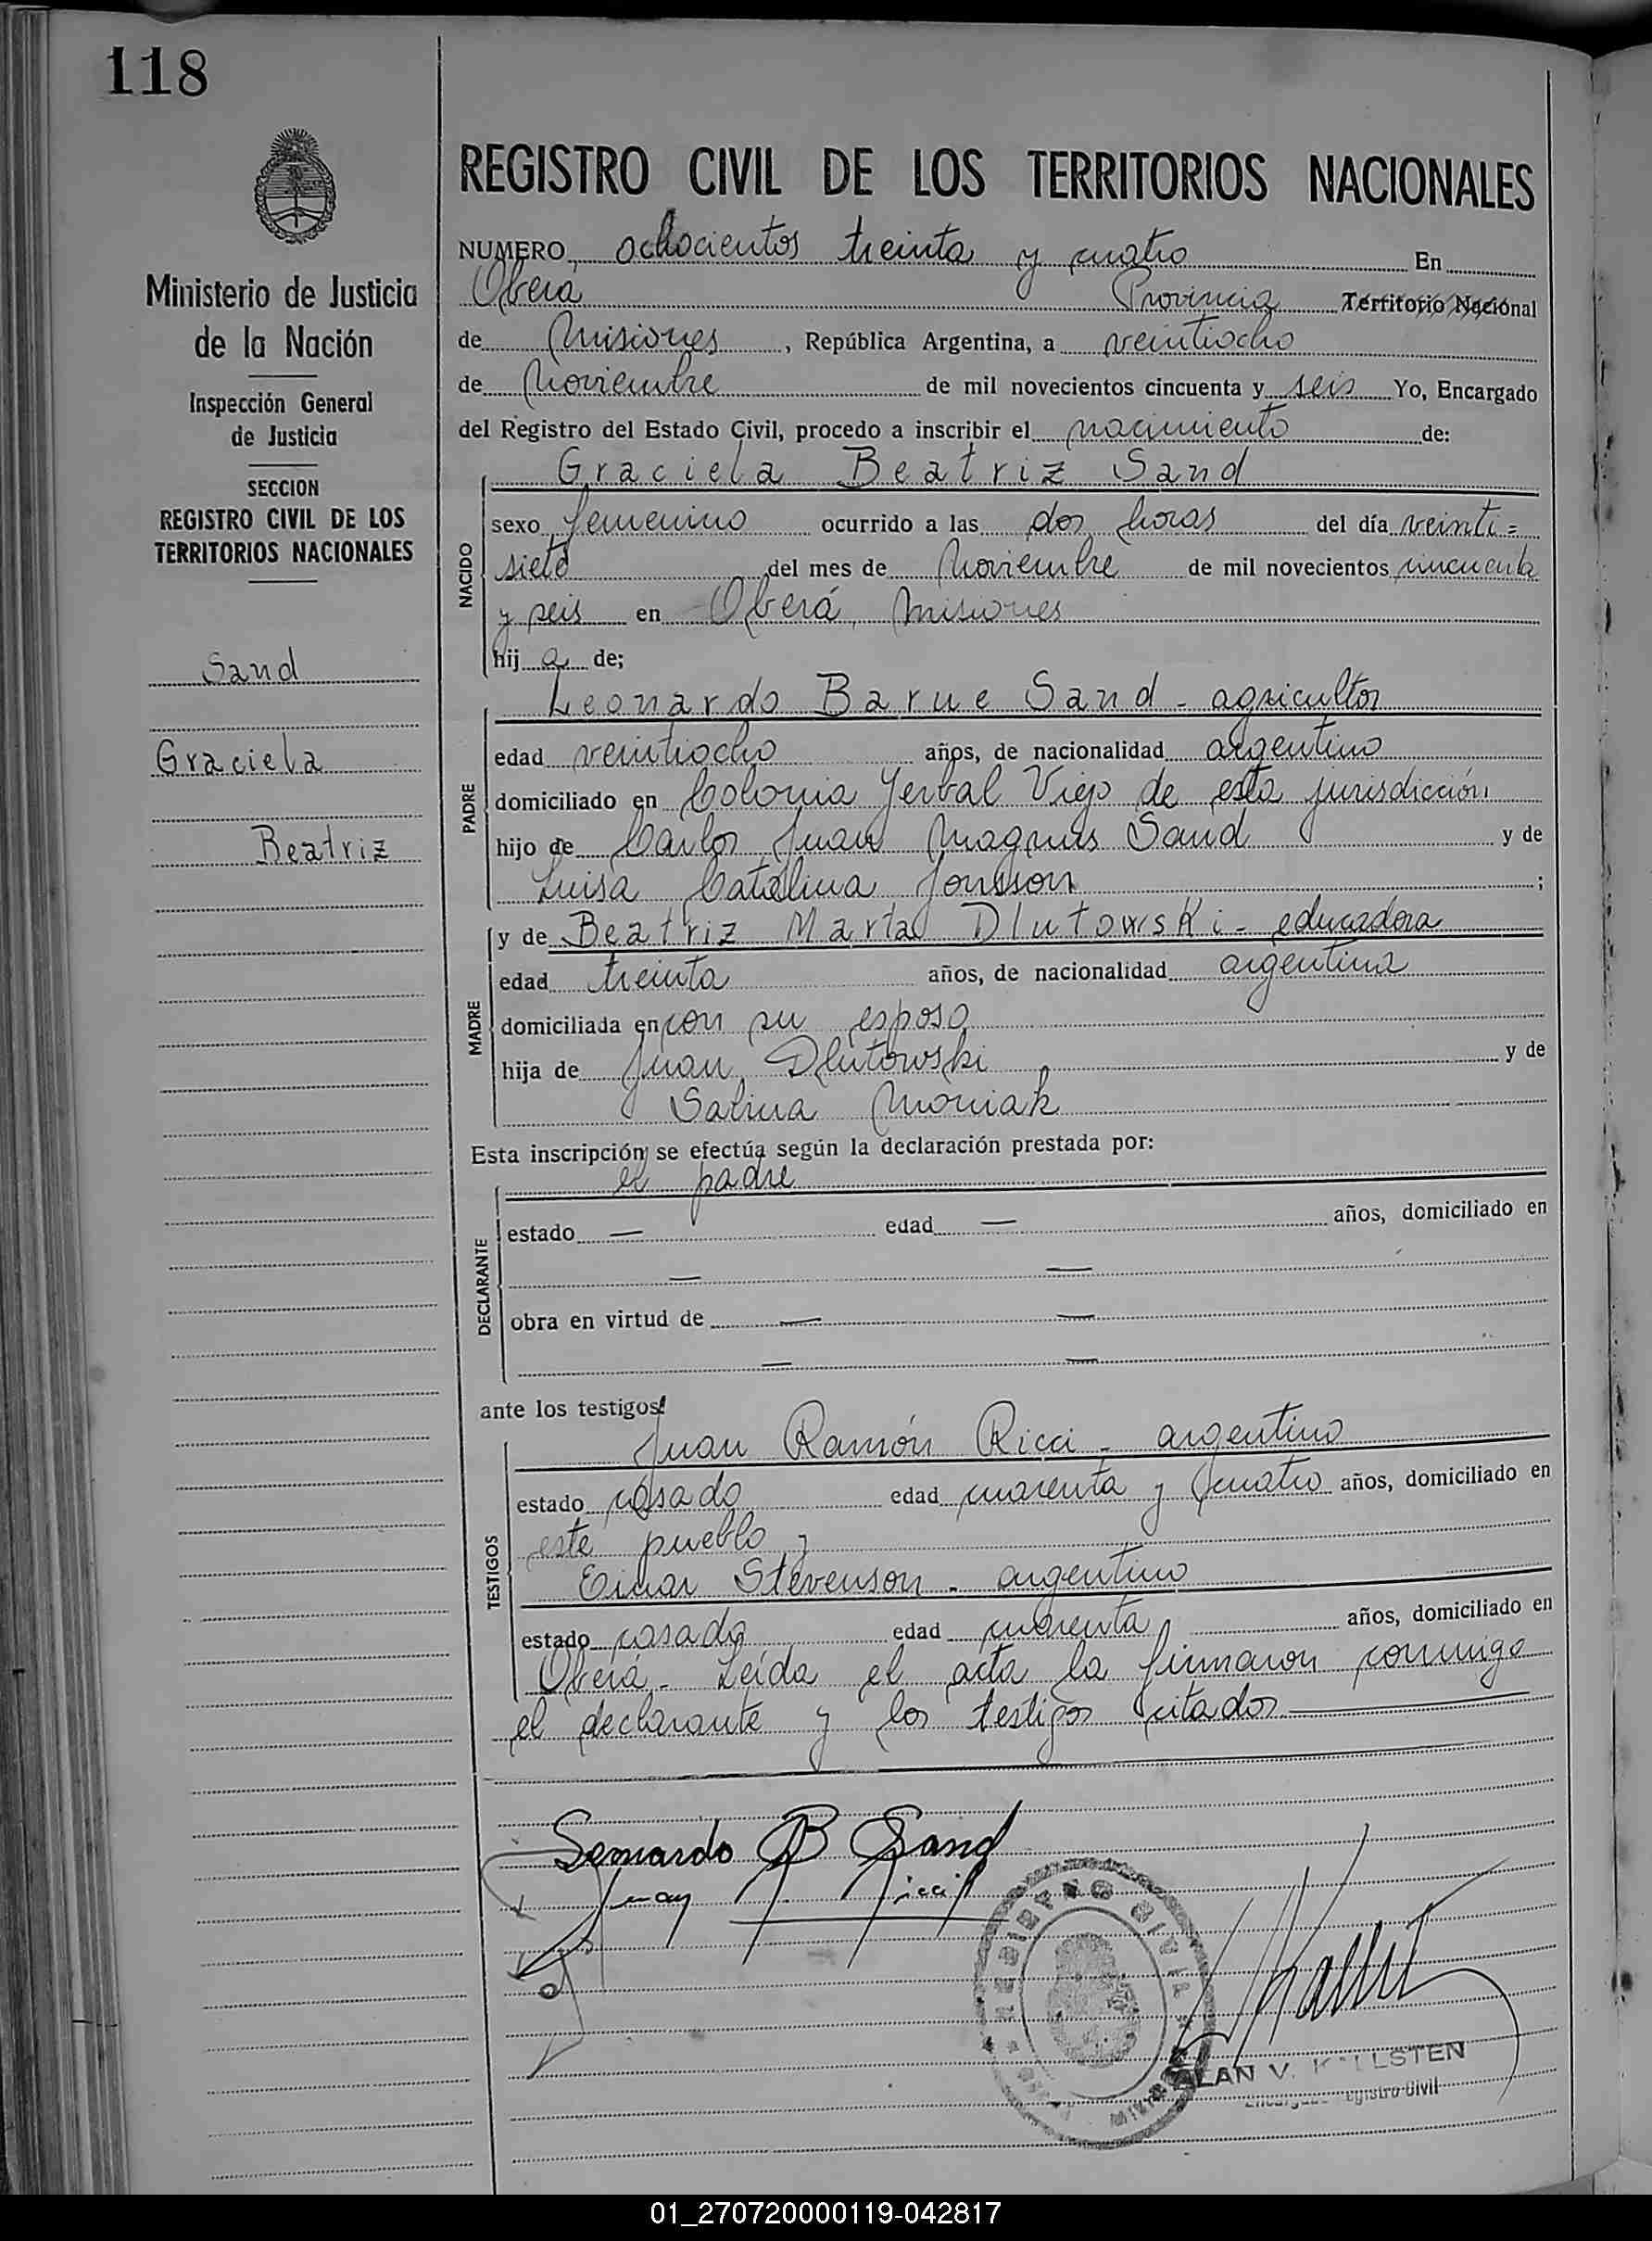 118
REGISTRO CIVIL DE LOS TERRITORIOS NACIONALES
Ministerio de Justicia
de la Nación
Inspección General
de Justicia
SECCION
REGISTRO CIVIL DE LOS
TERRITORIOS NACIONALES
Sand
Graciela
Beatriz
NUMERO ochocientos treinta y cuatro En
Oberá Provincia Territorio Nacional
de Misiones, República Argentina, a veintiocho
de Noviembre de mil novecientos cincuenta y seis Yo, Encargado
del Registro del Estado Civil, procedo a inscribir el nacimiento de:
NACIDO
Graciela Beatriz Sand
sexo femenino ocurrido a las dos horas del día veinti=
siete del mes de Noviembre de mil novecientos cincuenta
y seis en Oberá, Misiones
hij a de;
PADRE
Leonardo Barue Sand - agricultor
edad veintiocho años, de nacionalidad argentino
domiciliado en Colonia Yerbal Viejo de esta jurisdicción
hijo de Carlos Juan Magnus Sand y de
Luisa Catalina Jonsson ;
MADRE
y de Beatriz Marta Dlutowski - educadora
edad treinta años, de nacionalidad argentina
domiciliada en con su esposo
hija de Juan Dlutowski y de
Sabina Moniak
Esta inscripción se efectúa según la declaración prestada por:
DECLARANTE
el padre
estado — edad — años, domiciliado en
— —
obra en virtud de — —
— —
ante los testigos:
TESTIGOS
Juan Ramón Ricci - argentino
estado casado edad cuarenta y cuatro años, domiciliado en
este pueblo y
Einar Stevenson - argentino
estado casado edad cuarenta años, domiciliado en
Oberá - Leída el acta la firmaron conmigo
el declarante y los testigos citados
Leonardo B Sand
Juan R. Ricci
REGISTRO CIVIL
ALAN V. KALLSTEN
Encargado Registro Civil
01_270720000119-042817